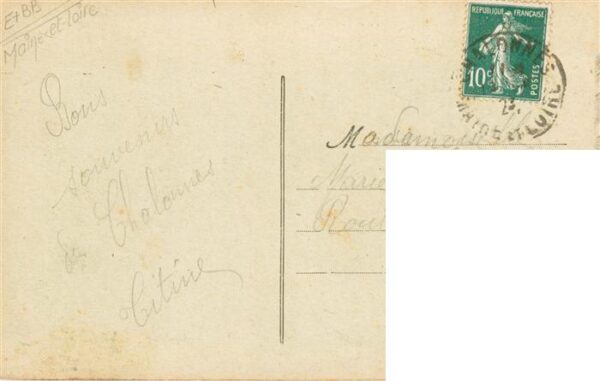 E+BB
Maine-et-Loire
Bons
souvenirs
de Chalonnes
Titine
REPUBLIQUE FRANÇAISE
10c
POSTES
LOIRE
Madame
Marie
Rou